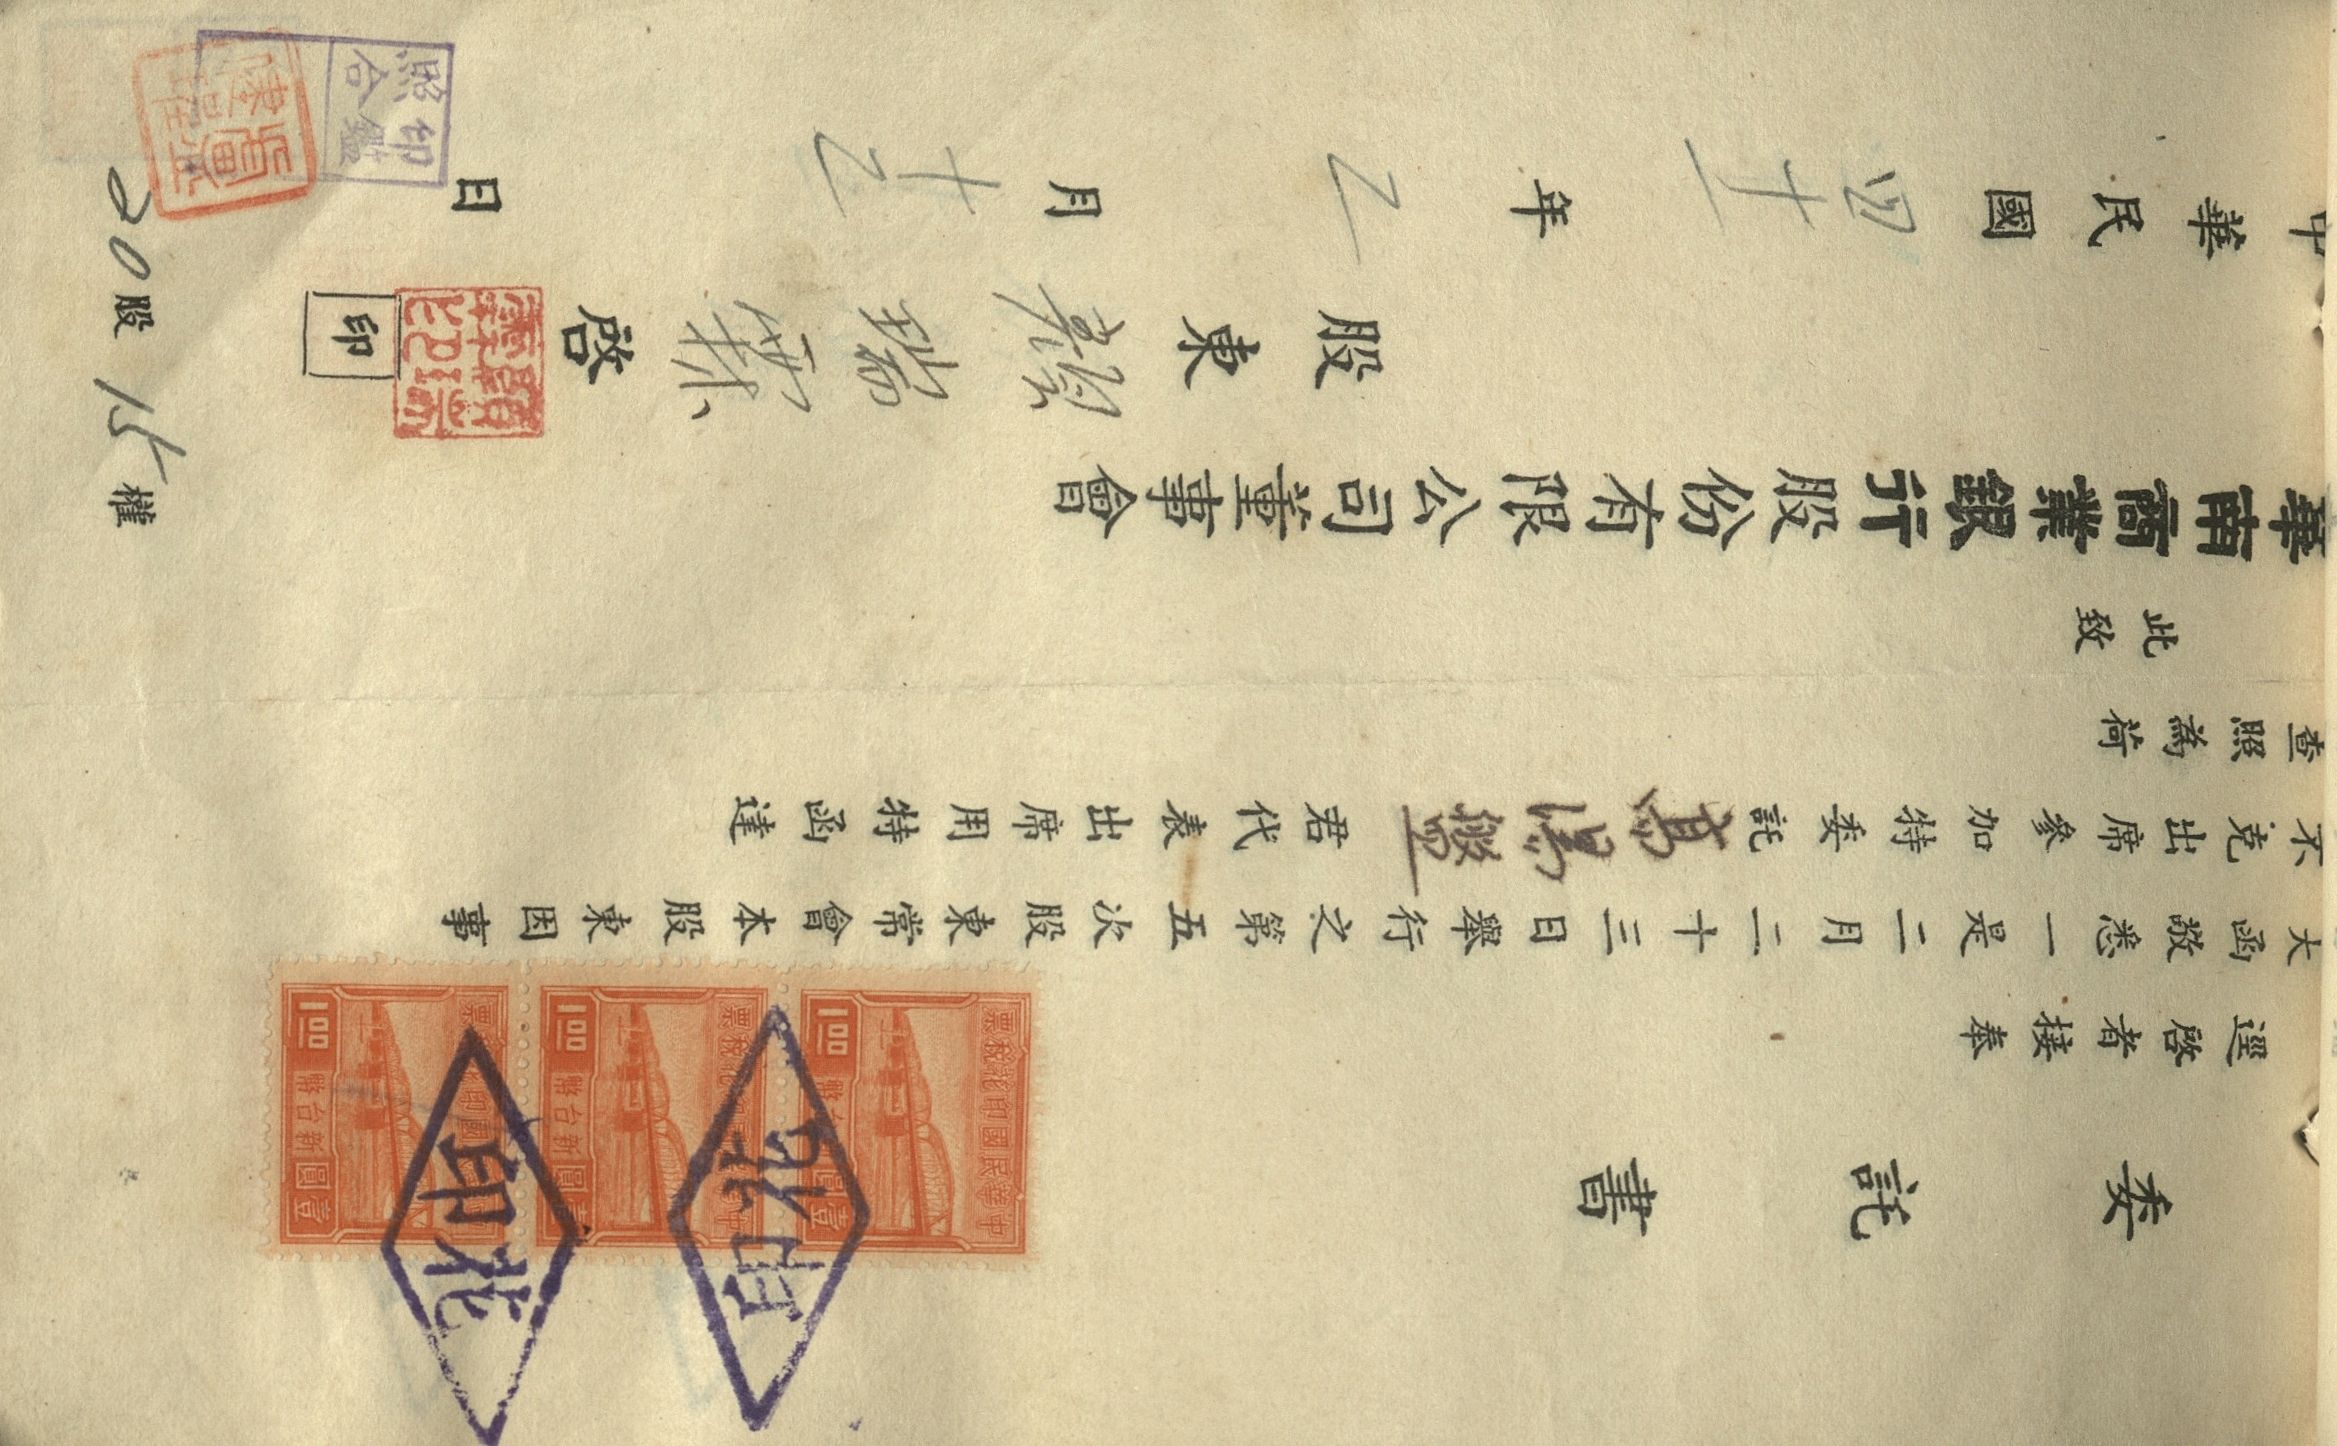 委託書
逕啓者接奉
大函敬悉一是二月二十三日舉行之第五次股東常會本股東因事
不克出席參加特委託高湯盤君代表出席用特函達
查照為荷
此致
華南商業銀行股份有限公司董事會
股東瑞啓 印
中華民國四十一年二月十二日
20股 15權
印鑑照合
中華民國印花稅票
壹圓 新台幣 1.00
中華民國印花稅票
壹圓 新台幣 1.00
中華民國印花稅票
壹圓 新台幣 1.00
印花
印花